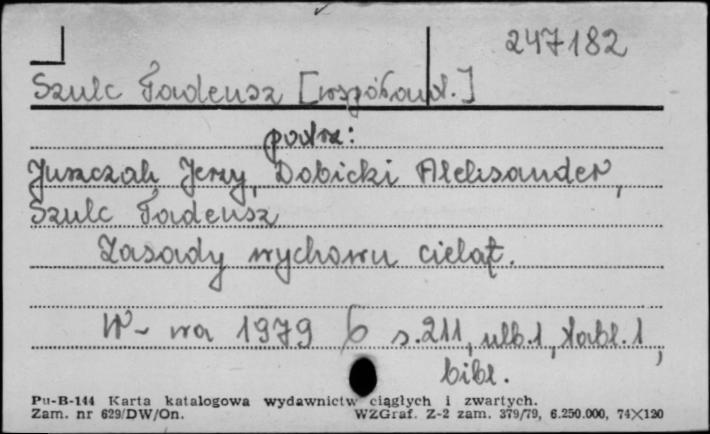 247182
Szulc Tadeusz [współaut.]
podrz:
Juszczak Jerzy, Dobicki Aleksander,
Szulc Tadeusz
Zasady wychowu cieląt.
W-wa 1979 s. 211, nlb. 1, tabl. 1,
bibl.
Pu-B-144 Karta katalogowa wydawnictw ciągłych i zwartych.
Zam. nr 629/DW/On. WZGraf. Z-2 zam. 379/79, 6.250.000, 74×120